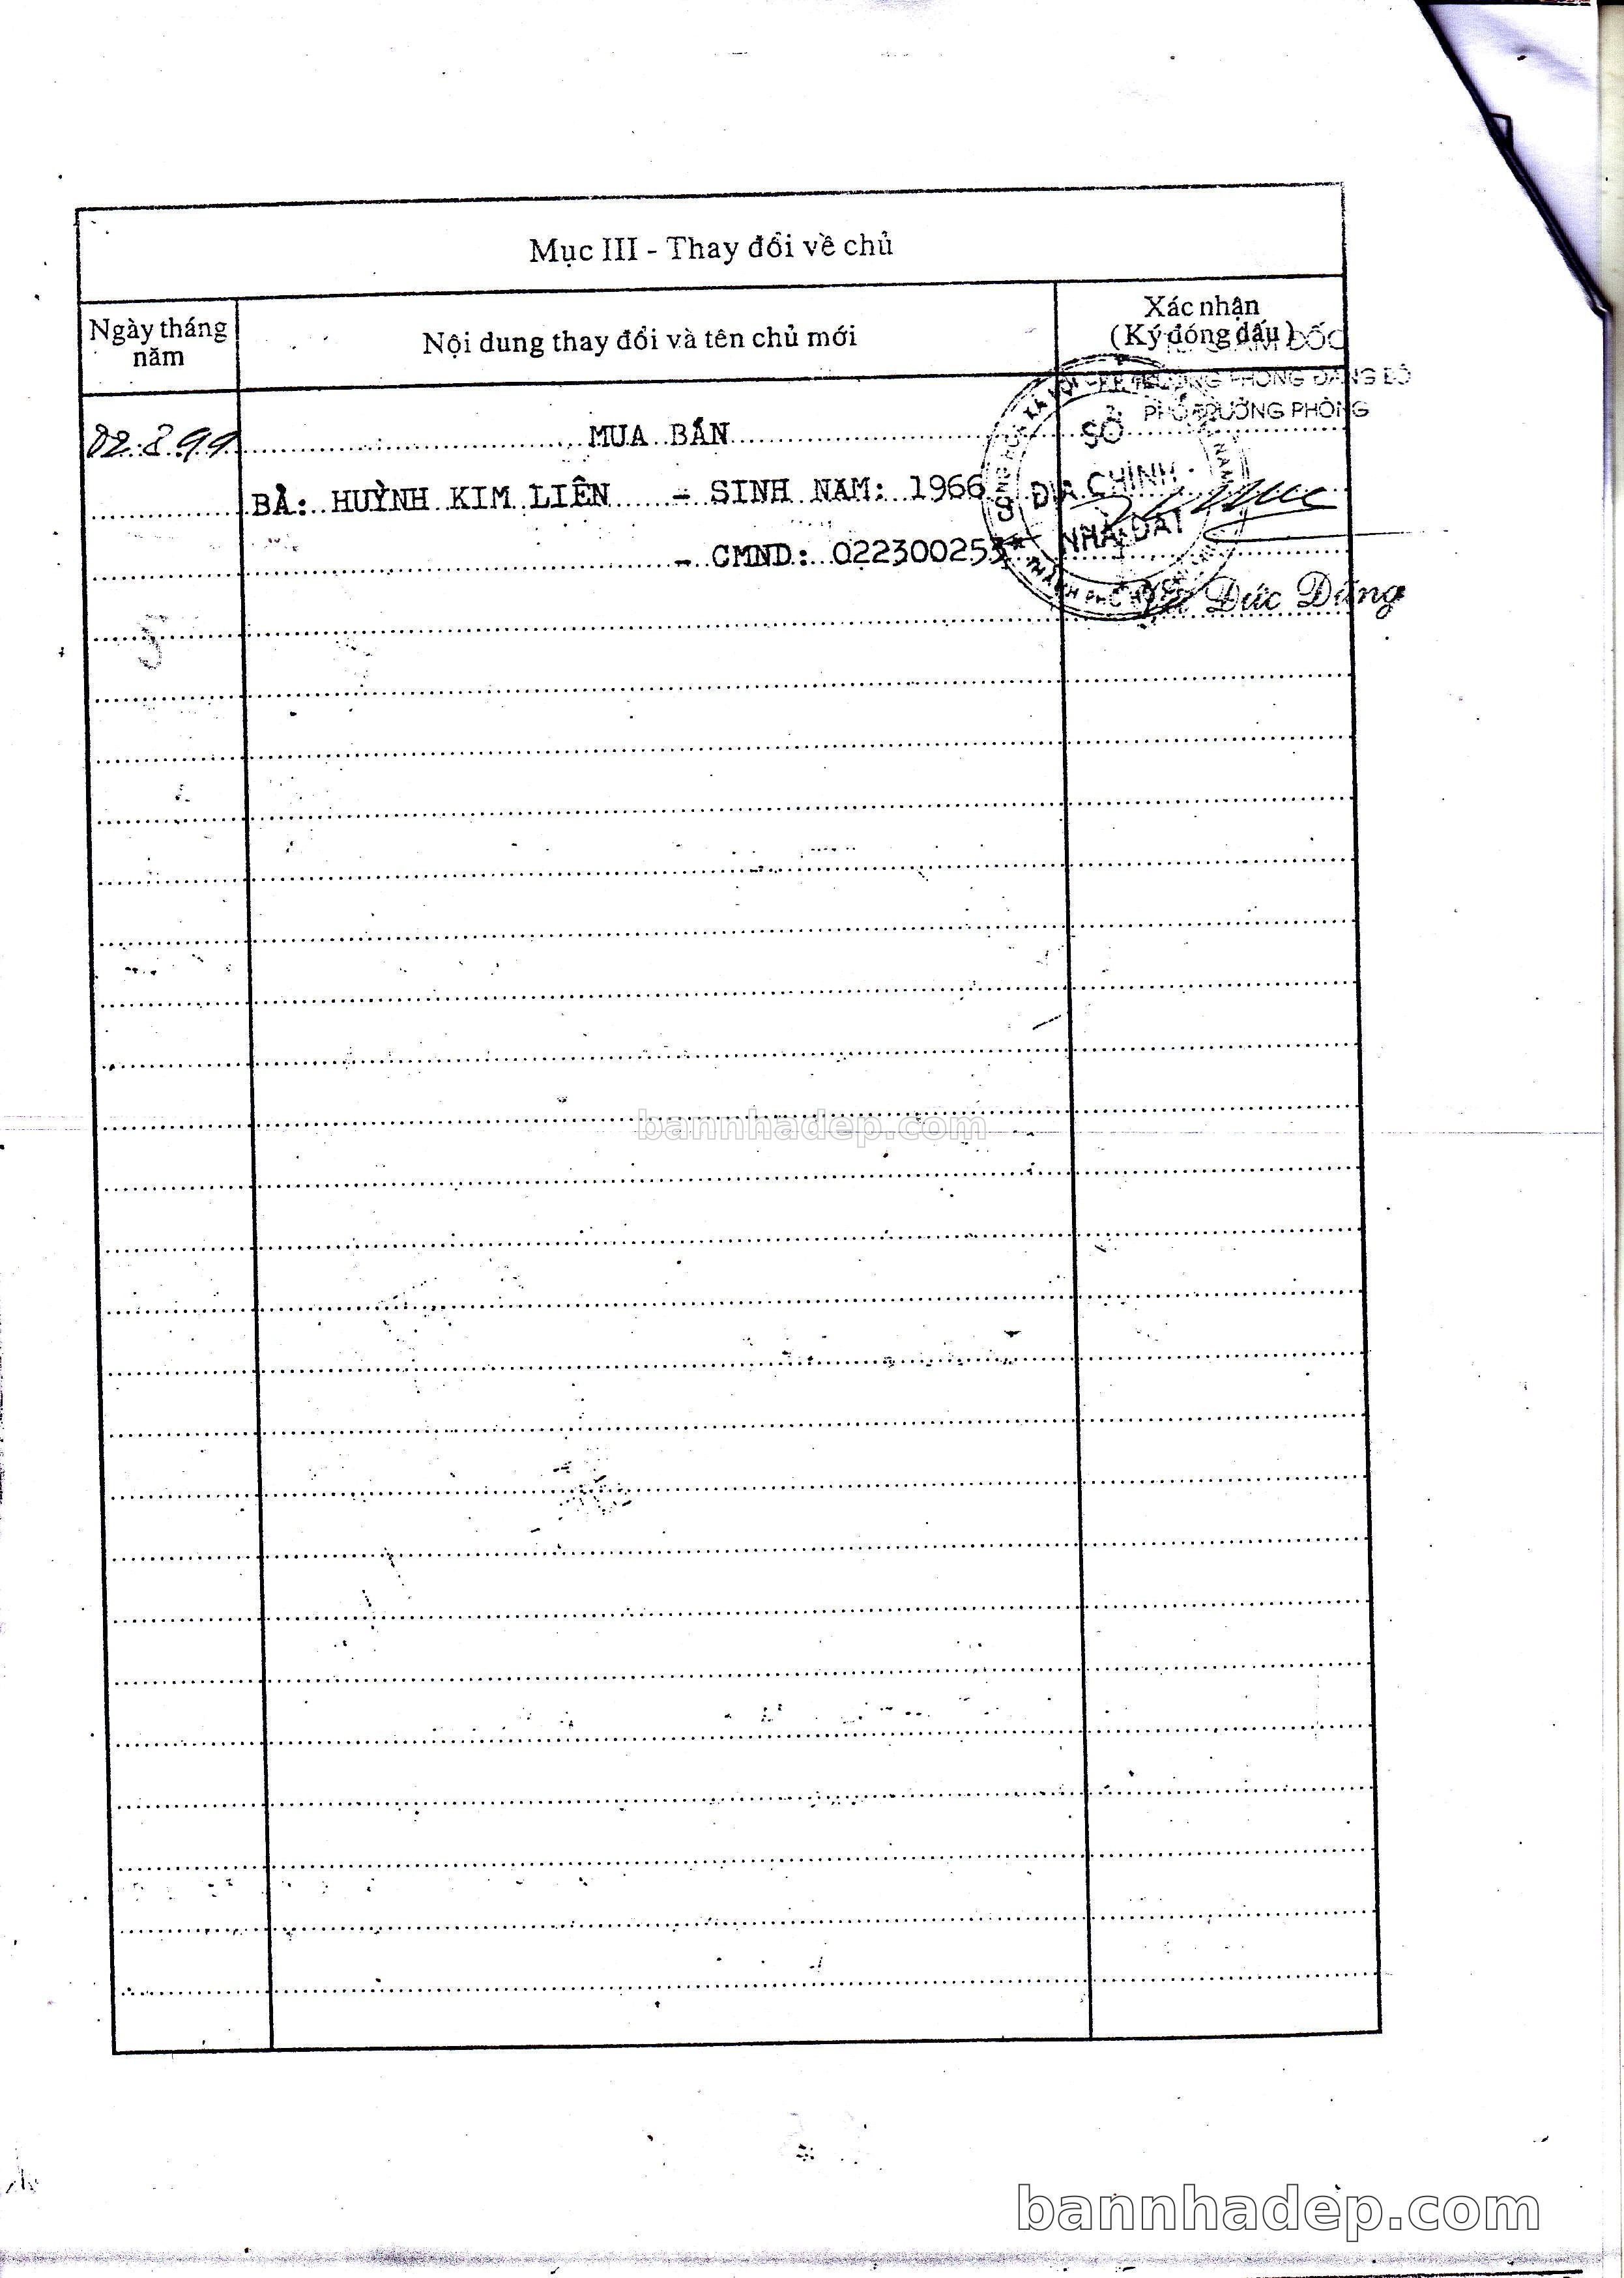 Mục III - Thay đổi về chủ
Ngày tháng năm
Nội dung thay đổi và tên chủ mới
Xác nhận
(Ký đóng dấu)
GIÁM ĐỐC
TRƯỞNG PHÒNG ĐĂNG BỘ
PHÓ TRƯỞNG PHÒNG
02.8.99
MUA BÁN
BÀ: HUỲNH KIM LIÊN - SINH NĂM: 1966
- CMND: 022300253
SỞ
ĐỊA CHÍNH
NHÀ ĐẤT
THÀNH PHỐ
Đức Đăng
bannhadep.com
bannhadep.com